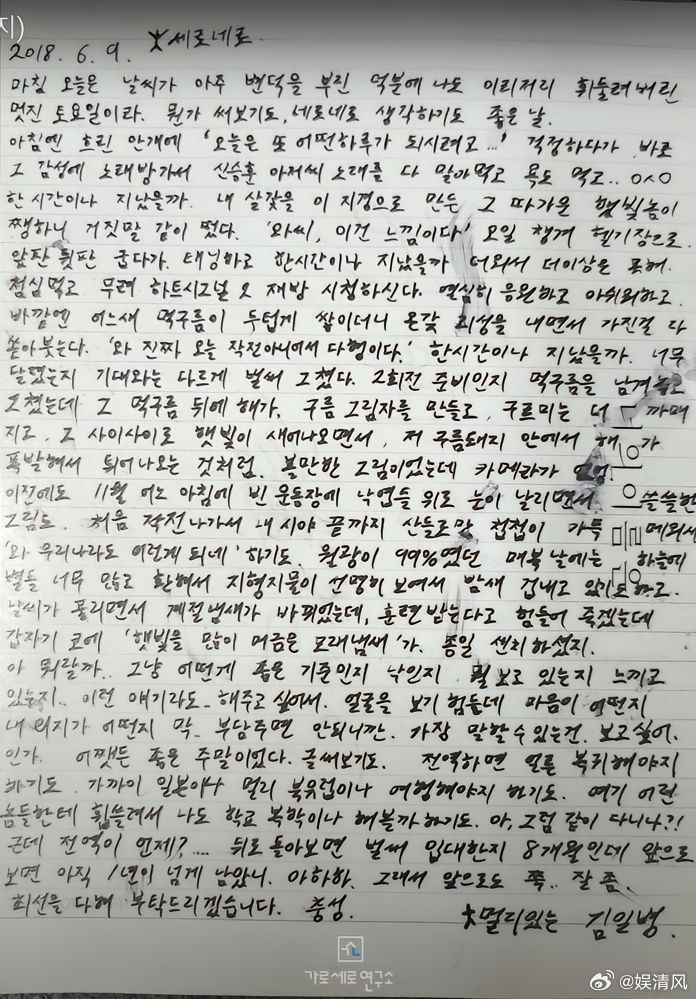 지)
2018. 6. 9. ★세로네로
마침 오늘은 날씨가 아주 변덕을 부린 덕분에 나도 이리저리 휘둘려버린
멋진 토요일이라. 뭔가 써보기도, 네로네로 생각하기도 좋은 날.
아침엔 흐린 안개에 '오늘은 또 어떤하루가 되시려고...' 걱정하다가 바로
그 감성에 노래방가서 신승훈 아저씨 노래를 다 말아먹고 욕도 먹고.. ㅇㅅㅇ
한시간이나 지났을까. 내 살갗을 이 지경으로 만든 그 따가운 햇빛놈이
쨍하니 거짓말 같이 떴다. '와씨, 이건 느낌이다' 오일 챙겨 헬기장으로.
앞판 뒷판 굽다가. 태닝하고 한시간이나 지났을까 더워서 더이상은 포기.
점심먹고 무려 하트시그널2 재방 시청하신다. 열심히 응원하고 아쉬워하고.
바깥엔 어느새 먹구름이 두텁게 쌓이더니 온갖 괴성을 내면서 가진걸 다
쏟아붓는다. '와 진짜 오늘 작전아니어서 다행이다.' 한시간이나 지났을까. 너무
달렸는지 기대와는 다르게 벌써 그쳤다. 2회전 준비인지 먹구름을 남겨놓고
그쳤는데 그 먹구름 뒤에 해가. 구름 그림자를 만들고, 구르미는 더 까매
지고, 그 사이사이로 햇빛이 새어나오면서, 저 구름돼지 안에서 해가
폭발해서 튀어나오는 것처럼. 볼만한 그림이었는데 카메라가
이전에도 11월 어느 아침에 빈 운동장에 낙엽들 위로 눈이 날리면서 쓸쓸한
그림도. 처음 작전나가서 내 시야 끝까지 산들로만 첩첩이 가득 메워서
'와 우리나라도 이렇게 되네' 하기도. 월광이 99%였던 매복날에는 하늘에
별들 너무 많고 환해서 지형지물이 선명히 보여서 밤새 겁내고 있기도하고.
날씨가 풀리면서 계절냄새가 바뀌었는데, 훈련받는다고 힘들어 죽겠는데
갑자기 코에 '햇빛을 많이 머금은 모래냄새'가. 종일 센치하셨지.
아 뭐랄까.. 그냥 어떤게 좋은 기준인지 낙인지 뭘 보고 있는지 느끼고
있는지.. 이런 얘기라도.. 해주고 싶어서. 얼굴을 보기 힘든데 마음이 어떤지
내 의지가 어떤지 막.. 부담주면 안되니깐. 가장 말할 수 있는건. 보고싶어.
인가. 어쨌든 좋은 주말이었다. 글써보기도. 전역하면 얼른 복귀해야지
하기도. 가까이 일본이나 멀리 북유럽이나 여행해야지 하기도. 여기 어린
놈들한테 휩쓸려서 나도 학교 복학이나 해볼까하기도. 아, 그럼 같이 다니나?!
근데 전역이 언제?.... 뒤로 돌아보면 벌써 입대한지 8개월인데 앞으로
보면 아직 1년이 넘게 남았니. 아하하. 그래서 앞으로도 쭉.. 잘 좀.
최선을 다해 부탁드리겠습니다. 충성.
★멀리있는 김일병.
가로세로연구소
@娱清风